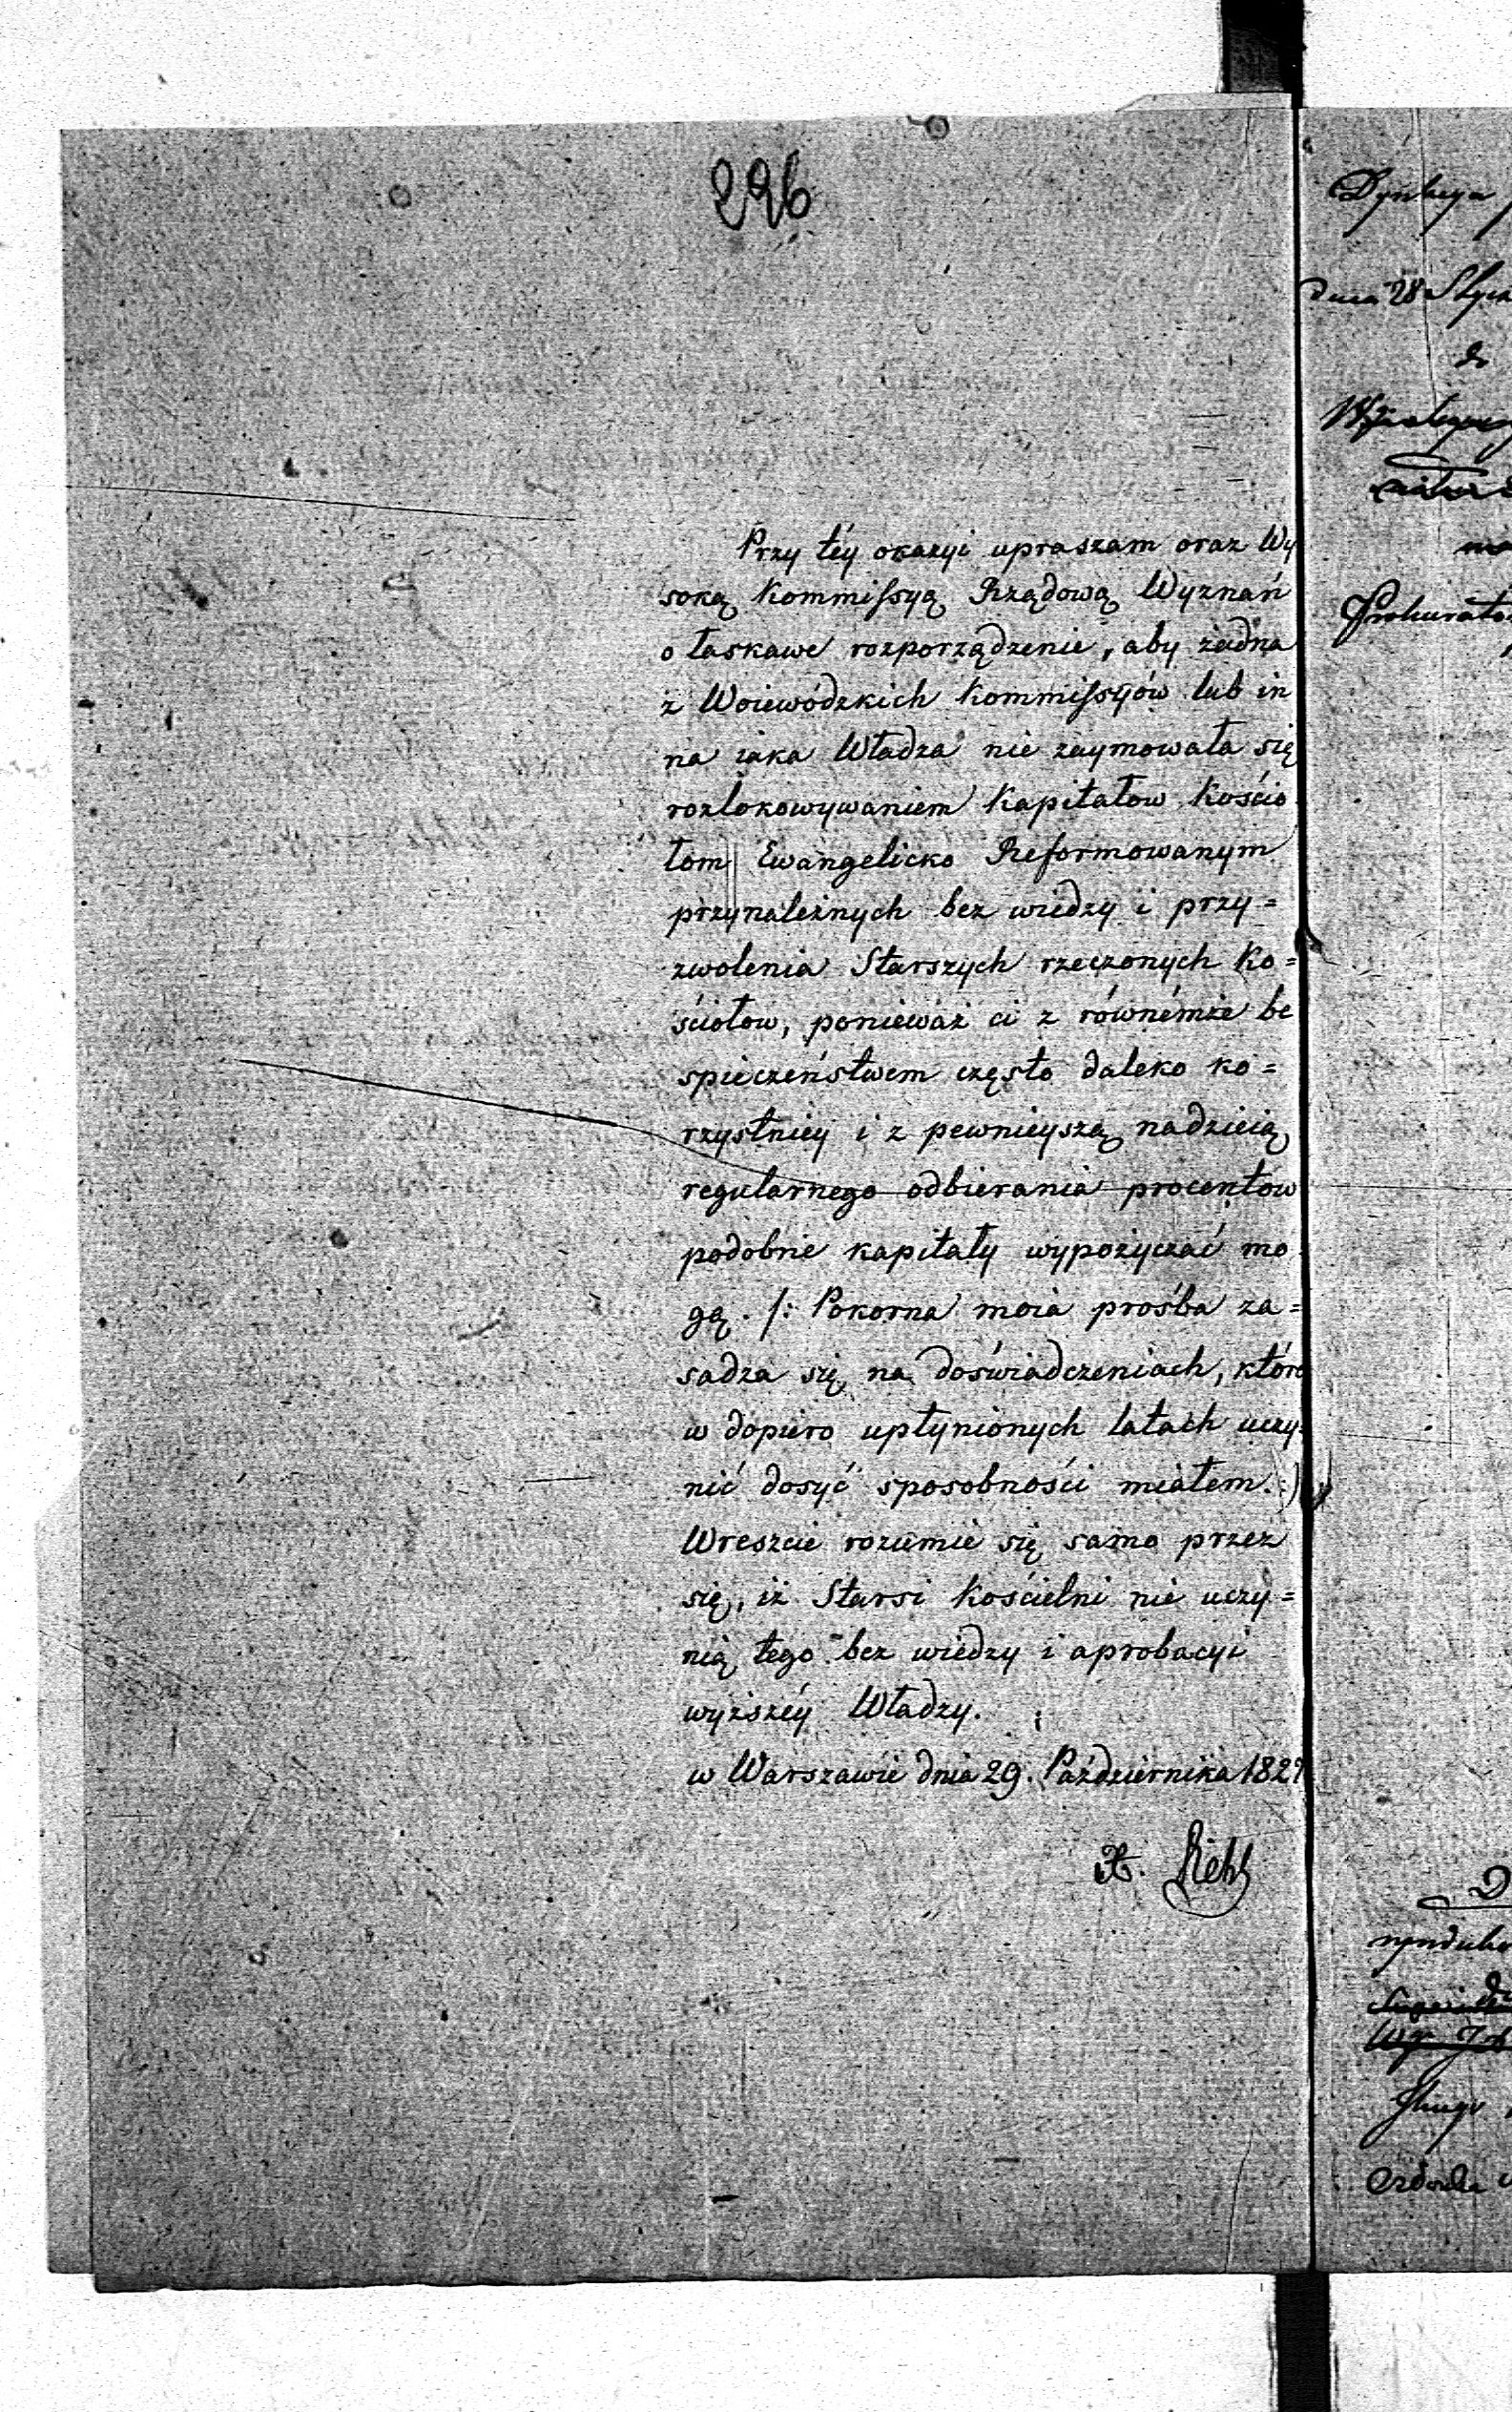 296
Przy téy okazyi upraszam oraz Wy
soką Kommissyą Rządową Wyznań
o łaskawe rozporządzenie, aby żadna
z Woiewódzkich Kommissyów lub in
na iaka Władza nie zaymowała się
rozlokowywaniem Kapitałow Kościo
łom Ewangelicko Reformowanym
przynależnych bez wiedzy i przy=
zwolenia Starszych rzeczonych Ko=
ściołow, ponieważ ci z równémże be
spieczeństwem często daleko ko=
rzystniey i z pewnieyszą nadzieią
regularnego odbierania procentow
podobne kapitały wypożyczać mo
gą. /: Pokorna moia prośba za=
sadza się na doświadczeniach, które
w dopiero upłynionych latach uczy=
nić dosyć sposobności miałem. :)
Wreszcie rozumie się samo przez
się, iż Starsi Kościelni nie uczy=
nią tego bez wiedzy i aprobacyi
wyższéy Władzy.
w Warszawie dnia 29. Października 182
X. Diehl
Dyrekcya
dnia 28 Stycz
do
Prokurato